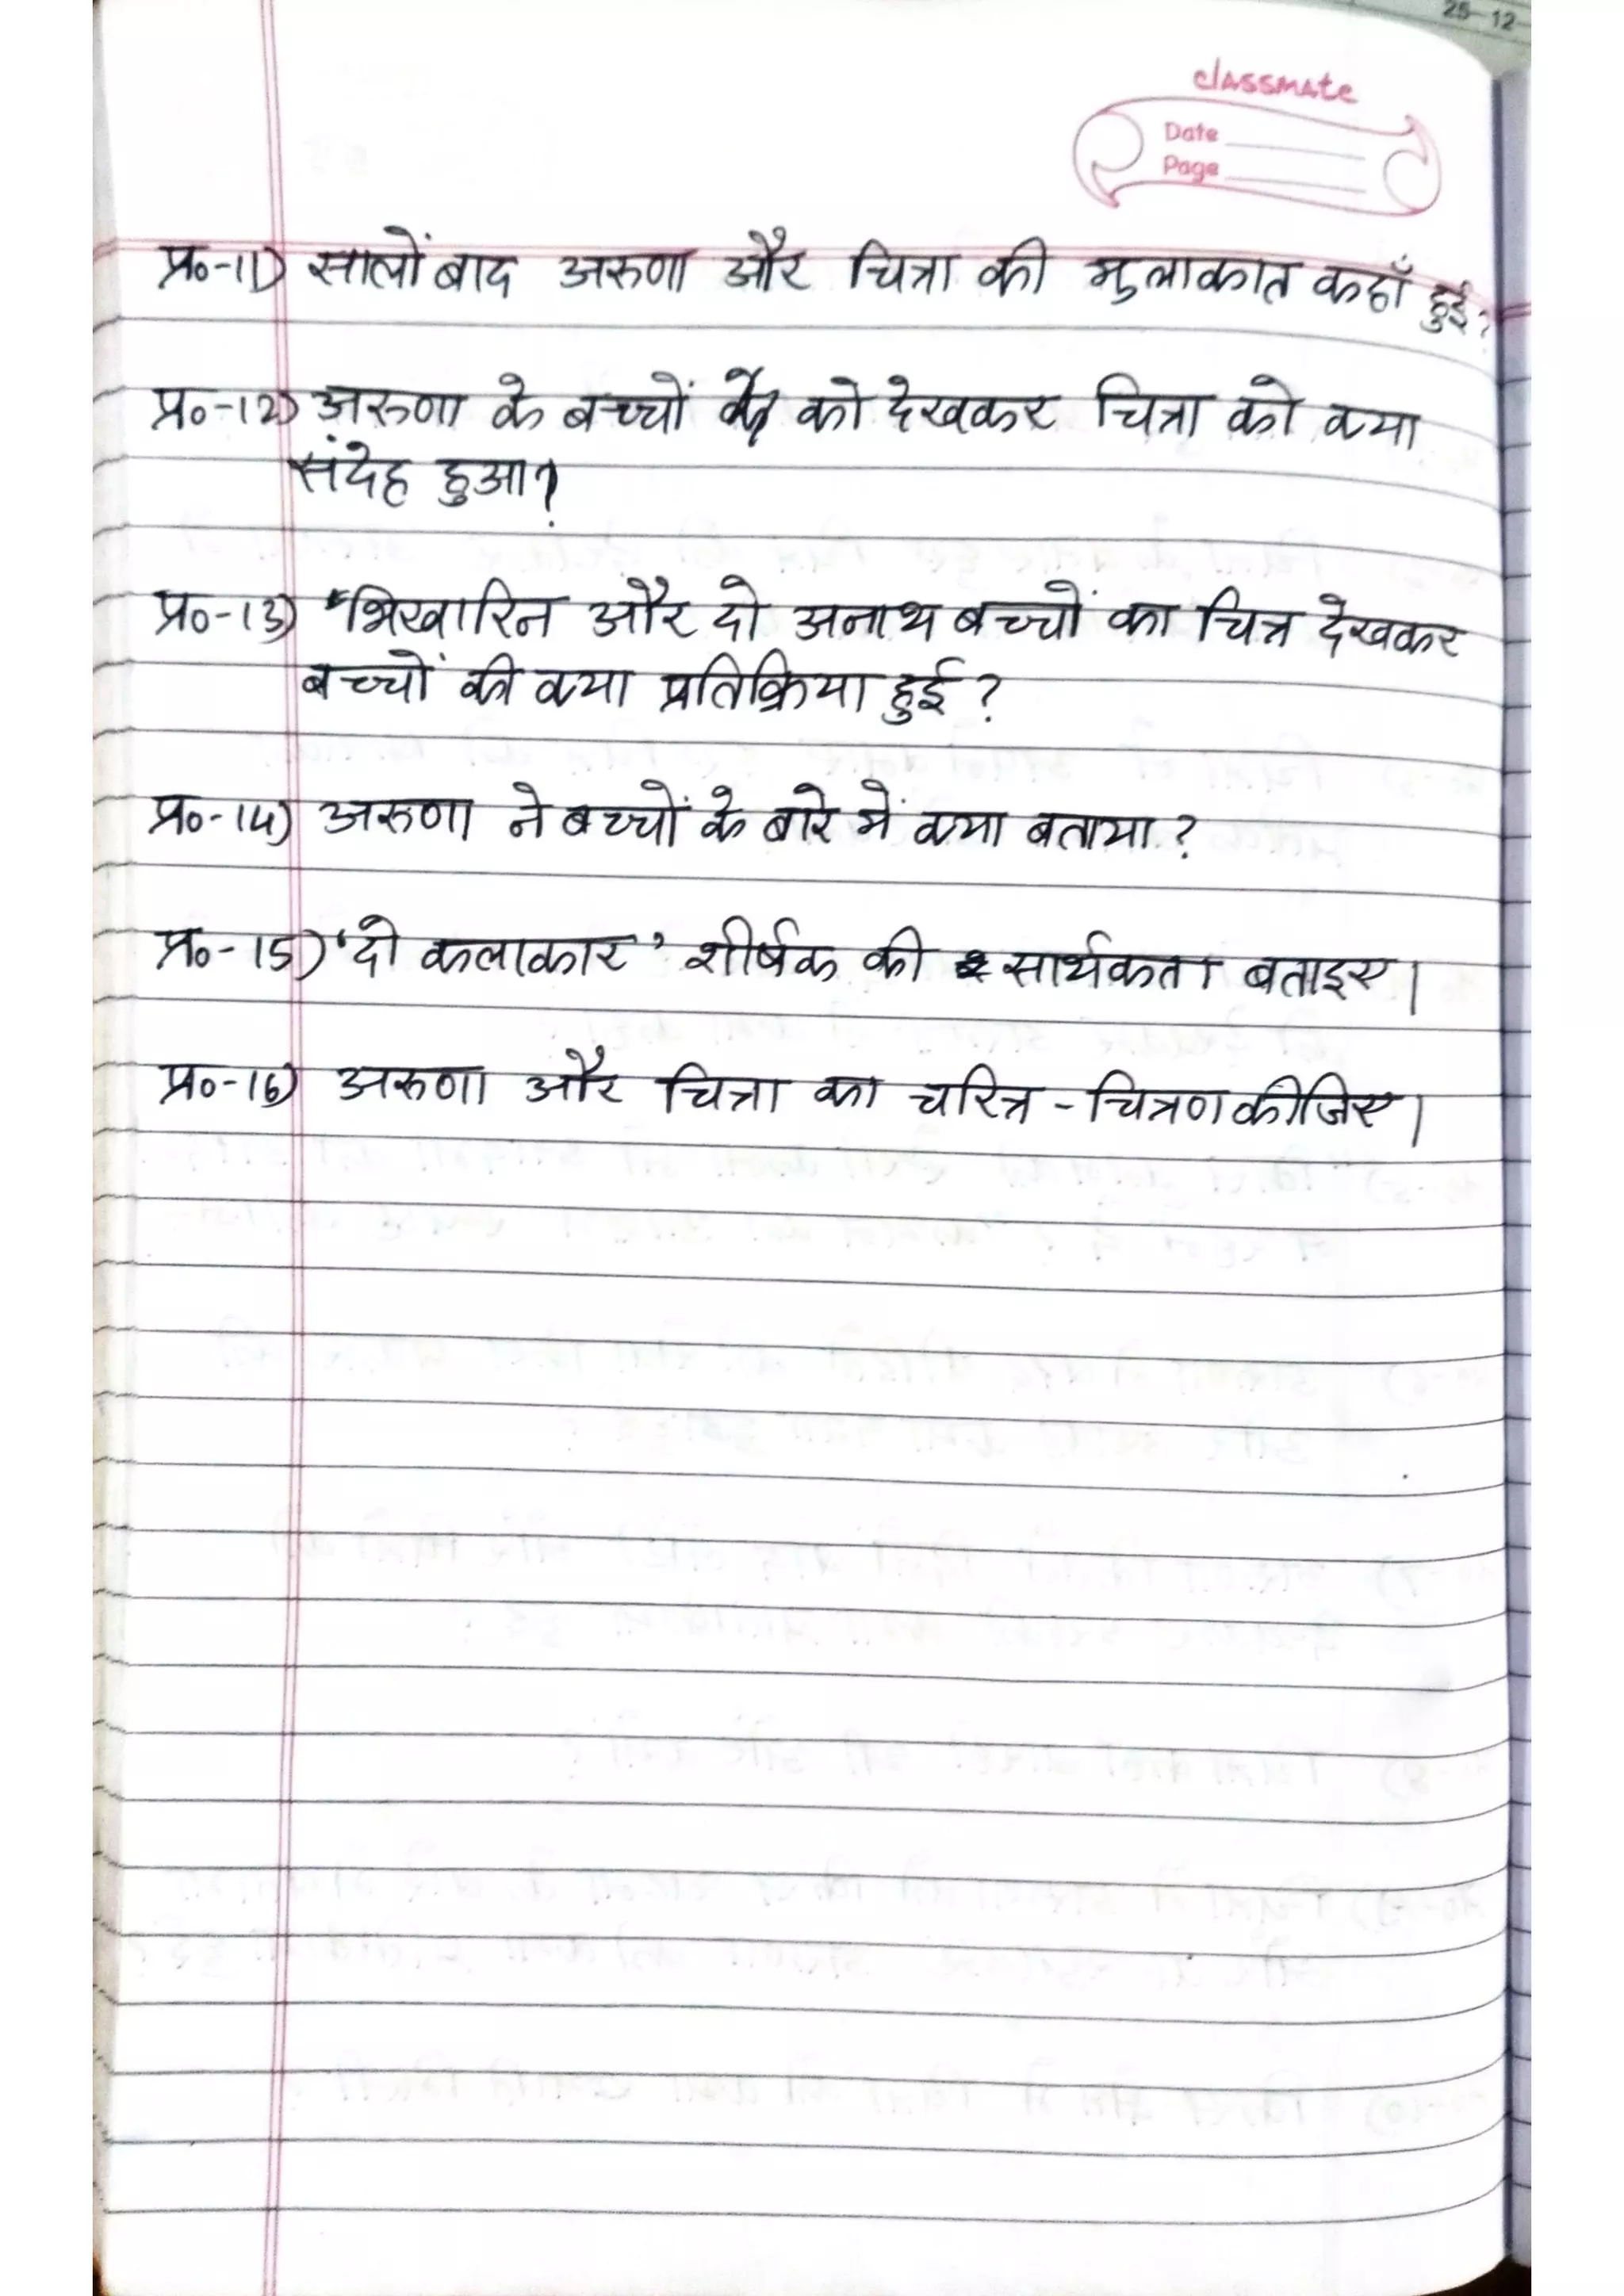 25-12
classmate
Date
Page
प्र०-11) सालों बाद अरुणा और चित्रा की मुलाकात कहाँ हुई?
प्र०-12) अरुणा के बच्चों को देखकर चित्रा को क्या
संदेह हुआ?
प्र०-13) भिखारिन और दो अनाथ बच्चों का चित्र देखकर
बच्चों की क्या प्रतिक्रिया हुई?
प्र०-14) अरुणा ने बच्चों के बारे में क्या बताया?
प्र०-15) 'दो कलाकार' शीर्षक की सार्थकता बताइए।
प्र०-16) अरुणा और चित्रा का चरित्र-चित्रण कीजिए।